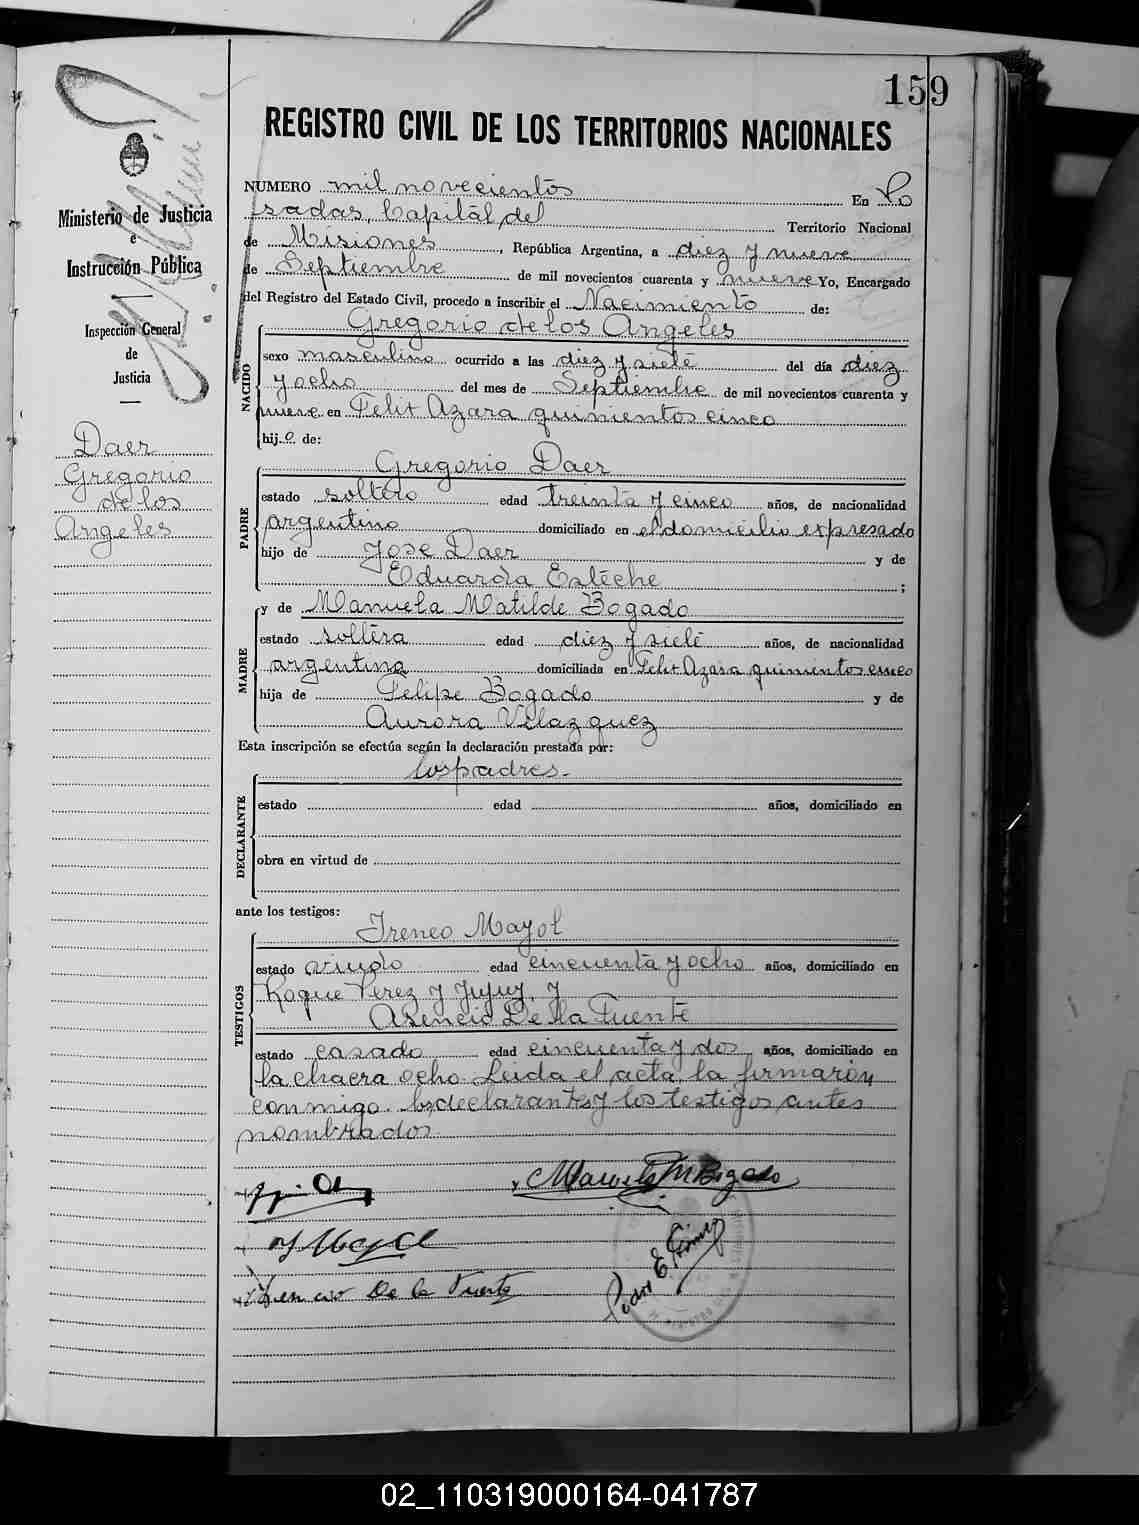 159
REGISTRO CIVIL DE LOS TERRITORIOS NACIONALES
Ministerio de Justicia
e
Instrucción Pública
Inspección General
de
Justicia
Daer
Gregorio
de los
Angeles
NUMERO mil novecientos En Po
sadas, Capital del Territorio Nacional
de Misiones, República Argentina, a diez y nueve
de Septiembre de mil novecientos cuarenta y nueve Yo, Encargado
del Registro del Estado Civil, procedo a inscribir el Nacimiento de:
NACIDO
Gregorio de los Angeles
sexo masculino ocurrido a las diez y siete del día diez
y ocho del mes de Septiembre de mil novecientos cuarenta y
nueve en Felix Azara quinientos cinco
hijo de:
PADRE
Gregorio Daer
estado soltero edad treinta y cinco años, de nacionalidad
argentino domiciliado en el domicilio expresado
hijo de Jose Daer y de
Eduarda Esteche;
MADRE
y de Manuela Matilde Bogado
estado soltera edad diez y siete años, de nacionalidad
argentina domiciliada en Felix Azara quinientos cinco
hija de Felipe Bogado y de
Aurora Velazquez
Esta inscripción se efectúa según la declaración prestada por:
DECLARANTE
los padres.-
estado edad años, domiciliado en
obra en virtud de
ante los testigos:
TESTIGOS
Ireneo Mayol
estado viudo edad cincuenta y ocho años, domiciliado en
Roque Perez y Jujuy, y
Asencio De la Fuente
estado casado edad cincuenta y dos años, domiciliado en
la chacra ocho. Leida el acta, la firmaron
conmigo los declarantes y los testigos antes
nombrados.
Manuela M Bogado
Mayol
Asencio De la Fuente
Pedro E.
02_110319000164-041787